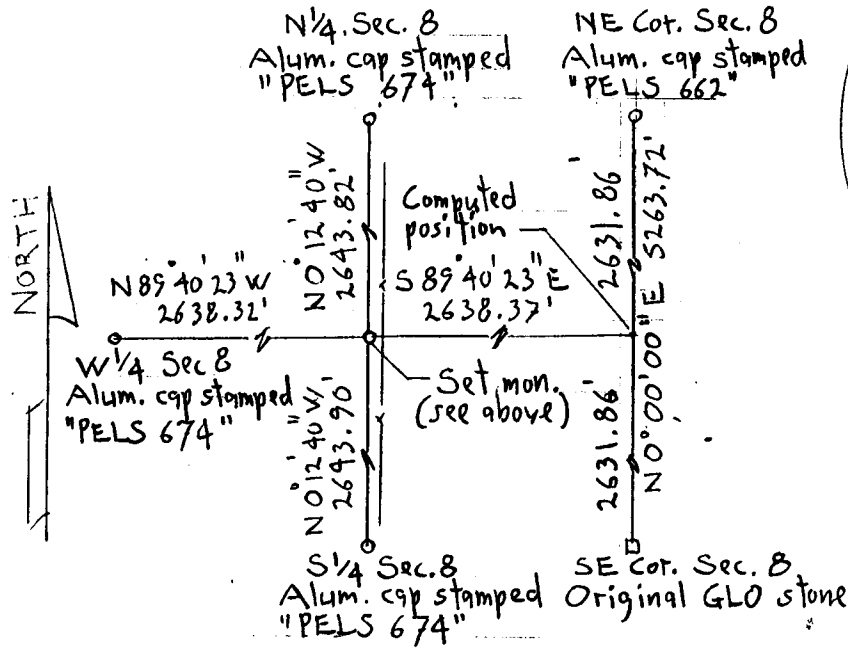 N1/4. Sec. 8
Alum. cap stamped
"PELS 674"
NE Cor. Sec. 8
Alum. cap stamped
"PELS 662"
NORTH
N 0°12'40" W
2643.82'
Computed
position
2631.86'
N 0°00'00" E 5263.72'
N 89°40'23" W
2638.32'
S 89°40'23" E
2638.37'
W 1/4 Sec 8
Alum. cap stamped
"PELS 674"
Set mon.
(see above)
N 0°12'40" W
2643.90'
2631.86'
S 1/4 Sec. 8
Alum. cap stamped
"PELS 674"
SE Cor. Sec. 8
Original GLO stone